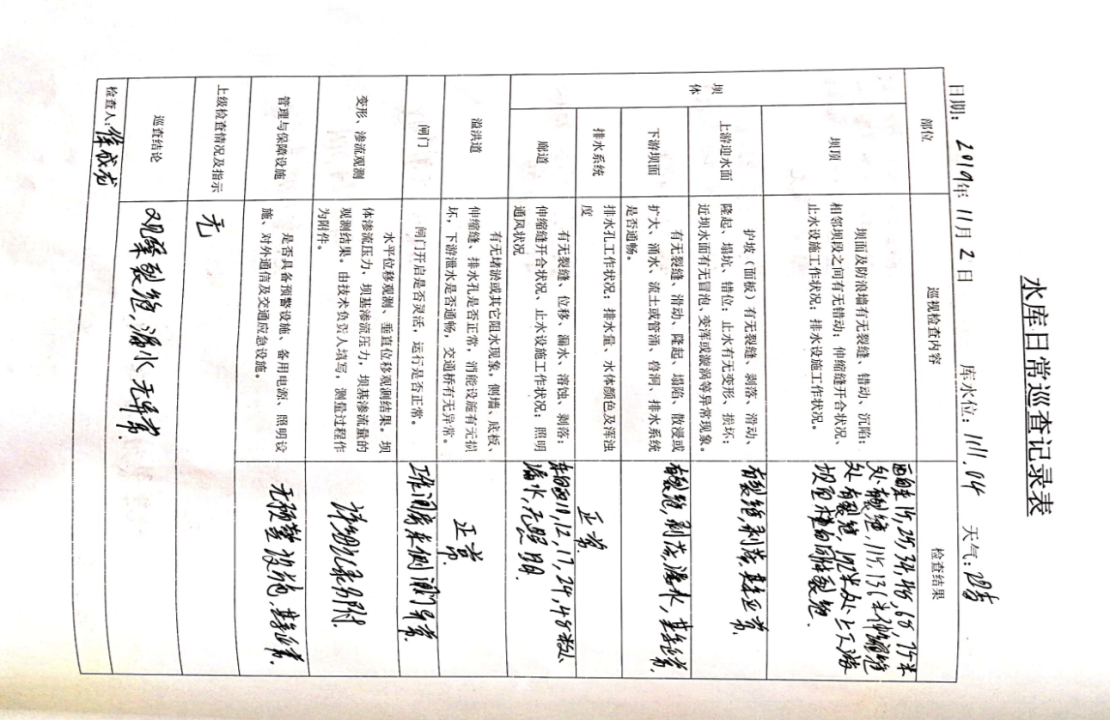 水库日常巡查记录表
日期：2019年11月2日 库水位：111.04 天气：阴
部位 巡视检查内容 检查结果
坝体
坝顶
坝面及防浪墙有无裂缝、错动、沉陷；
相邻坝段之间有无错动；伸缩缝开合状况、
止水设施工作状况；排水设施工作状况。
处有裂缝，
上游迎水面
护坡（面板）有无裂缝、剥落、滑动、
隆起、塌坑、错位；止水有无变形、损坏；
近坝水面有无冒泡、变浑或漩涡等异常现象。
有裂缝，剥落，其它正常。
下游坝面
有无裂缝、滑动、隆起、塌陷、散浸或
扩大、涌水、流土或管涌、兽洞、排水系统
是否通畅。
有裂缝，剥落，漏水，其它正常。
排水系统
排水孔工作状况；排水量、水体颜色及浑浊
度
正常
廊道
有无裂缝、位移、漏水、溶蚀、剥落；
伸缩缝开合状况、止水设施工作状况；照明
通风状况
漏水，无照明。
溢洪道
有无堵淤或其它阻水现象，侧墙、底板、
伸缩缝、排水孔是否正常，消能设施有无损
坏，下游泄水是否通畅，交通桥有无异常。
正常
闸门
闸门开启是否灵活，运行是否正常。
变形、渗流观测
水平位移观测、垂直位移观测结果。坝
体渗流压力、坝基渗流压力，坝基渗流量的
观测结果。由技术负责人填写，测量过程作
为附件。
详细记录另附
管理与保障设施
是否具备预警设施、备用电源、照明设
施、对外通信及交通应急设施。
无预警设施，其它正常。
上级检查情况及指示
无
巡查结论
观察裂缝，漏水无异常。
检查人：